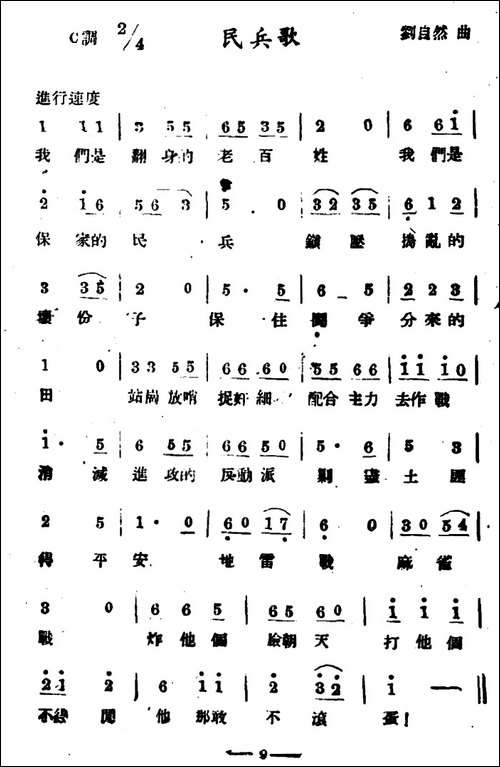 C調 2/4 民兵歌 劉自然 曲
進行速度
1 1 1 | 3 5 5 | 6 5 3 5 | 2 0 | 6 6 i |
我們是 翻身的 老百姓 我們是
2 i 6 | 5 6 3 | 5 0 | 3 2 3 5 | 6 1 2 |
保家的 民 兵 鎮 壓 搗亂的
3 3 5 | 2 0 | 5 · 5 | 6 · 5 | 2 2 3 |
壞份 子 保 住 鬭 爭 分來的
1 0 | 3 3 5 5 | 6 6 6 0 | 5 5 6 6 | i i i 0 |
田 站崗放哨 捉奸細 配合主力 去作戰
i · 5 | 6 5 5 | 6 6 5 0 | 5 · 6 | 5 3 |
消 滅 進攻的 反動派 剿 盡 土 匪
2 5 | 1 · 0 | 6 0 1 7 | 6 · 0 | 3 0 5 4 |
得 平 安 地 雷 戰 麻 雀
3 0 | 6 6 5 | 6 5 6 0 | i i i |
戰 炸他個 臉朝天 打他個
2 i 2 | 6 i i | 2 3 2 | i — ||
不 他那敢 不 滾 蛋!
— 9 —